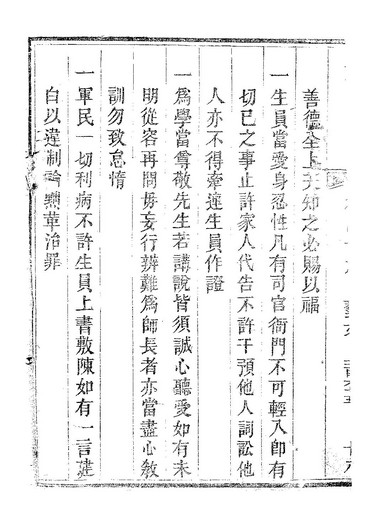 善德全上天知之必賜以福
一生員當愛身忍性凡有司官衙門不可輕入即有
切已之事止許家人代告不許干預他人詞訟他
人亦不得牽連生員作證
一爲學當尊敬先生若講說皆須誠心聽受如有未
明從容再問毋妄行辨難爲師長者亦當盡心敎
訓勿致怠惰
一軍民一切利病不許生員上書敷陳如有一言建
白以違制論黜革治罪